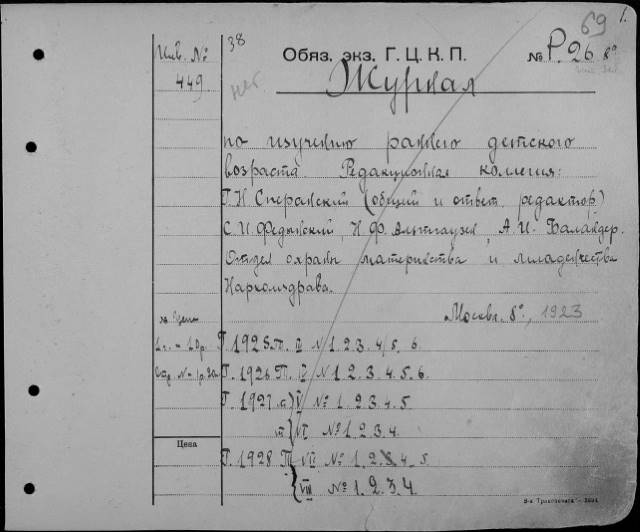 69 1.
Инв. №
449
38
нет
Обяз. экз. Г. Ц. К. П.
№ Р. 26 8°
Журнал
по изучению раннего детского
возраста. Редакционная коллегия:
Г. Н. Сперанский (общий и ответ. редактор)
С. И. Федынский, Н. Ф. Альтгаузен, А. И. Баландер.
Отдел охраны материнства и младенчества
Наркомздрава.
Москва. 8°, 1923
Цена
Г. 1925 Т. III № 1. 2. 3. 4/5. 6.
Г. 1926 Т. IV № 1. 2. 3. 4. 5. 6.
Г. 1927 т. V № 1. 2. 3. 4. 5
т. VI № 1. 2. 3. 4.
Цена
Г. 1928 Т. VII № 1. 2. 3. 4. 5.
VIII № 1. 2. 3. 4